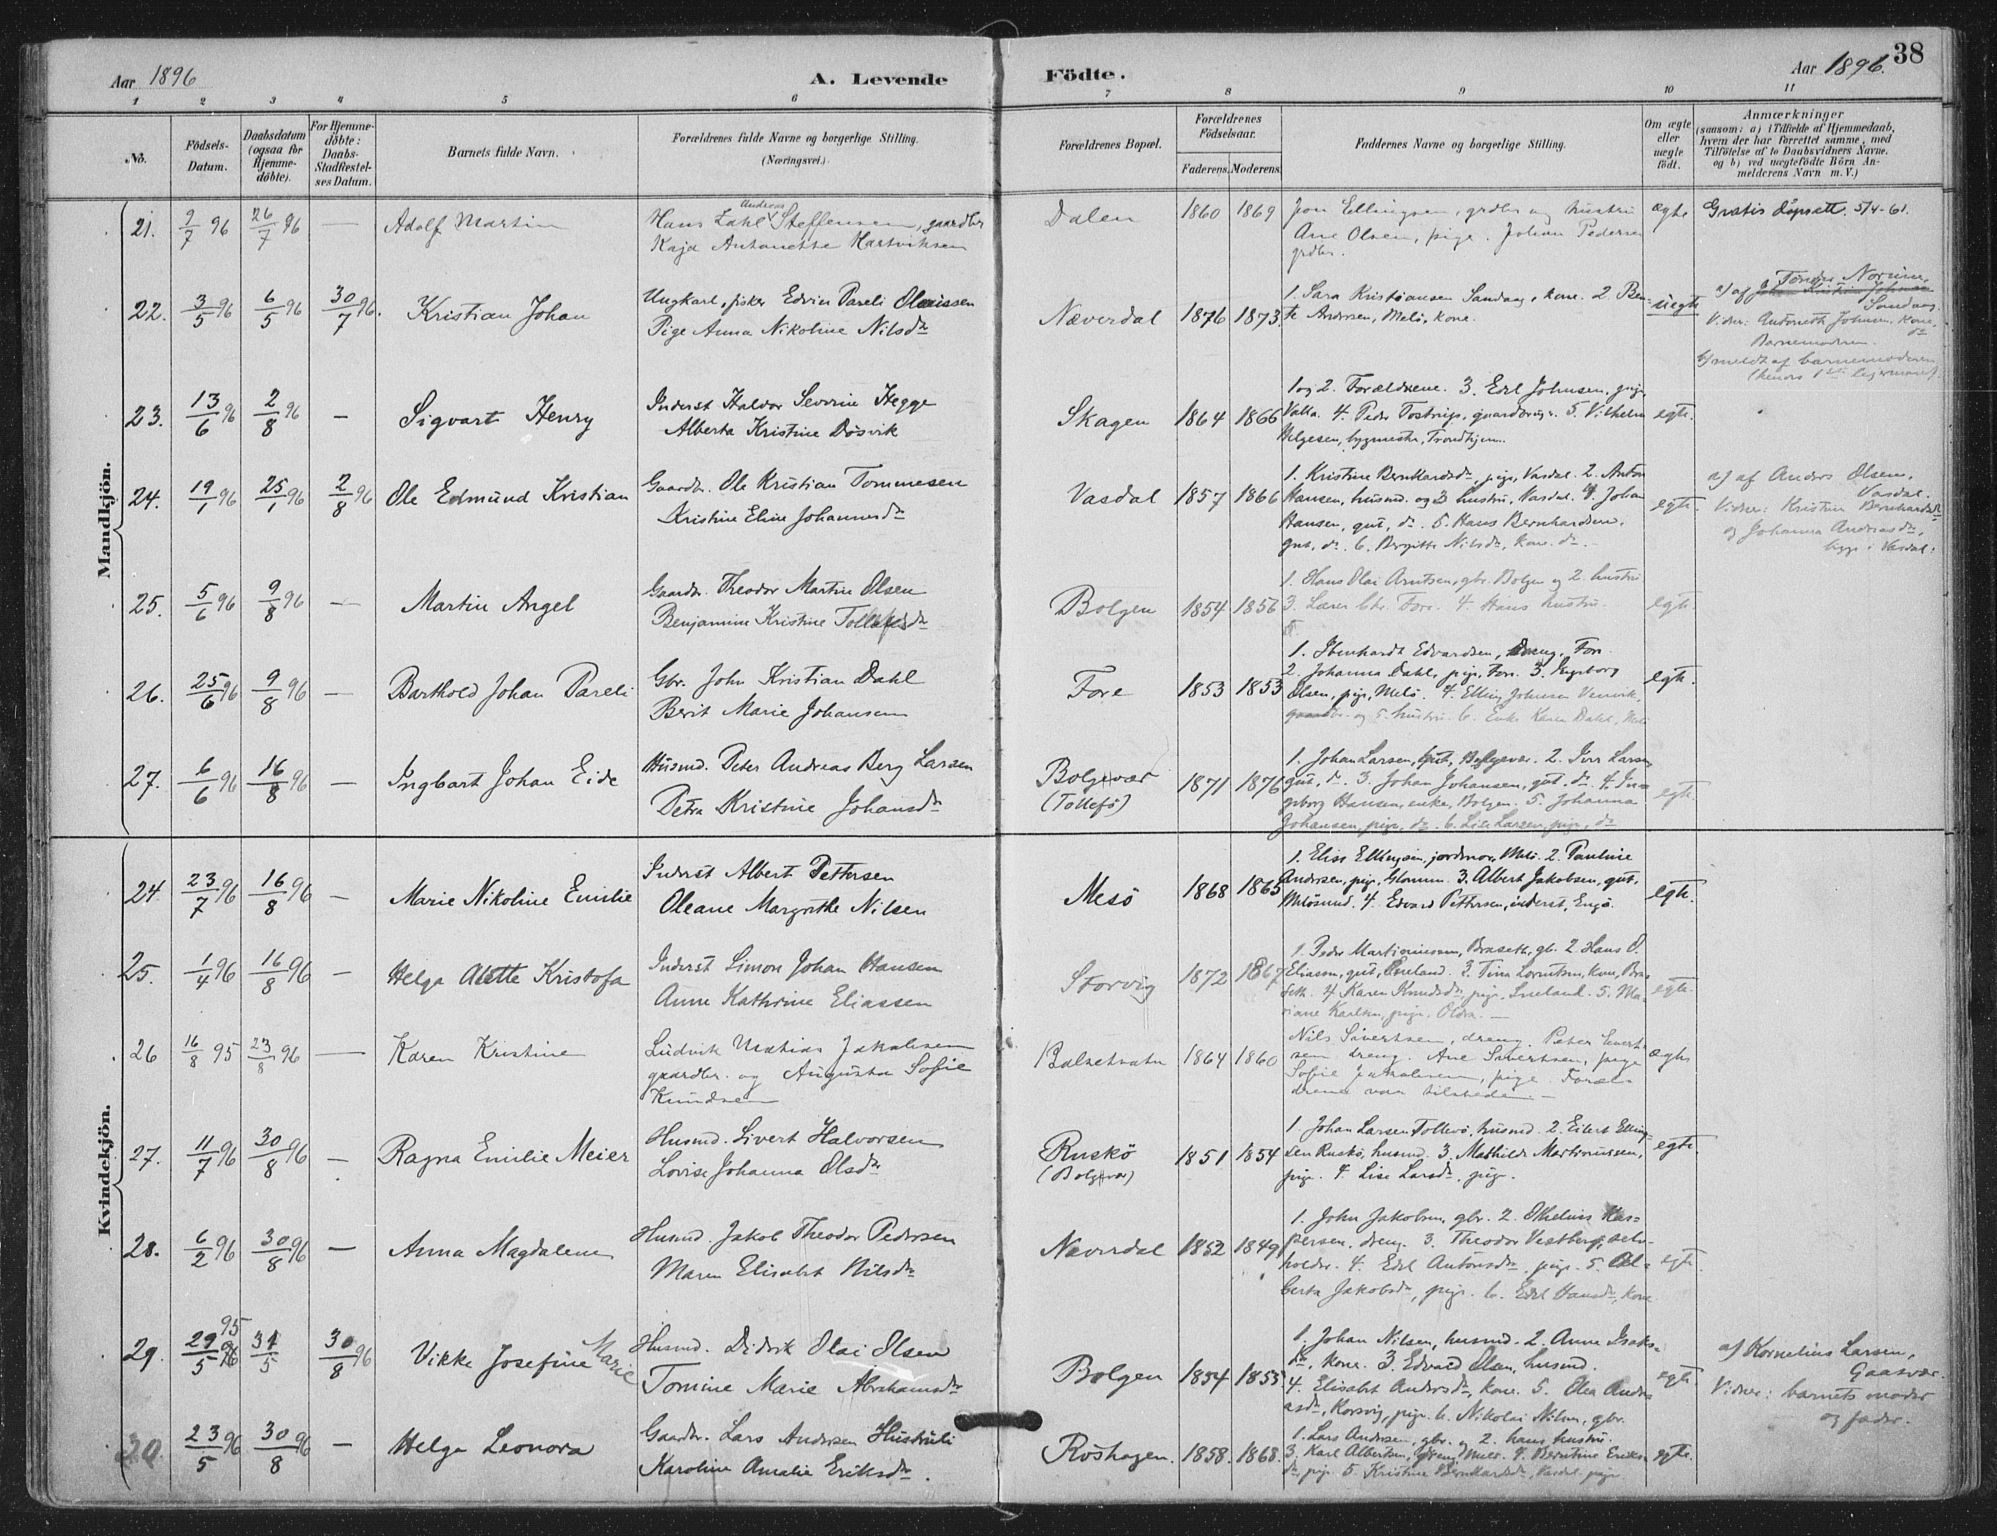 Aar 1896
A. Levende
Födte.
Aar 1896.
38
1 2 3 4 5 6 7 8 9 10 11
No.
Födsels-
Datum.
Daabsdatum
(ogsaa for
Hjemme-
döbte).
For Hjemme-
döbte:
Daabs-
Stadfæstel-
ses Datum.
Barnets fulde Navn.
Forældrenes fulde Navne og borgerlige Stilling.
(Næringsvei.)
Forældrenes Bopæl.
Forældrenes
Födselsaar.
Faderens. Moderens.
Faddernes Navne og borgerlige Stilling.
Om ægte
eller
uægte
födt.
Anmærkninger
(saasom: a) i Tilfælde af Hjemmedaab,
hvem der har forrettet samme, med
Tilföielse af to Daabsvidners Navne.
og b) ved uægtefödte Börn An-
melderens Navn m. V.)
Mandkjön.
21. 9/7 96 26/7 96 — Adolf Martin
Hans Zahl Andreas Steffensen, gaardbr
Kaja Antonette Hartviksen
Dalen 1860 1869
Jon Ellingsen, grdbr og hustru
Ane Olsen, pige. Johan Pedersen
grdbr.
ægte
Gratis dåpsatt. 5/4-61.
22. 3/5 96 6/5 96 30/7 96. Kristian Johan
Ungkarl, fisker Edvin Pareli Olaissen
Pige Anna Nikoline Nilsdr
Næverdal 1876 1873
1. Sara Kristiansen Sandaag, kone. 2 Ben-
te Andersen, Melö, kone.
uegte
Sandaag.
Vidner: Antoneth Johnsen, kone,
Barnemoderen.
b) meldt af barnemoderen
23. 13/6 96 2/8 96 — Sigvart Henry
Inderst Haldor Severin Hegge
Alberta Kristine Dösvik
Skagen 1864 1866
1 og 2. Forældrene. 3. Edel Johnsen, pige
Valla. 4. Peder Tostrup, 5. Vilhelm
Helgesen, bygmester, Trondhjem.
egte.
24. 19/1 96 25/1 96 2/8 96 Ole Edmund Kristian
Gaardbr. Ole Kristian Tommesen
Kristine Eline Johannesdr
Vasdal 1857 1866
1. Kristine Bernhardsdr, pige, Vasdal. 2. Anton
Hansen, husmd. og 3 hustru, Vasdal. 4. Johan
Hansen, gut, do. 5. Hans Bernhardsen.
gut, do. 6. Bergitte Nilsdr, kone. do.
egte.
a) af Anders Olsen,
Vasdal.
Vidner: Kristine Bernhardsdr
og Johanna Andreasdr,
begge i Vasdal.
25. 5/6 96 9/8 96 — Martin Angel
Gaardbr. Theodor Martin Olsen
Benjamine Kristine Tollefsdr
Bolgen 1854 1856
1. Hans Olai Arntsen, gbr. Bolgen og 2. hustru
3. Lærer Fore. 4. Hans hustru.
egte.
26. 25/6 96 9/8 96 — Barthold Johan Pareli
Gbr. John Kristian Dahl
Berit Marie Johansen
Fore 1853 1853
1. Ibenhardt Edvardsen, dreng, Fore.
2. Johanna Dahl, pige, Fore. 3. Ingeborg
Olsen, pige, Melö. 4. Elling Johnsen
og 5. hustru. 6. Enke Karen Dahl,
egte.
27. 6/6 96 16/8 96 — Ingbart Johan Eide
Husmd. Peter Andreas Berg Larsen
Petra Kristine Johansdr
Bolgevær
(Tollefö) 1871 1876
1. Johan Larsen, gut, Bolgevær. 2. Iver Larsen
gut, do. 3. Johan Johansen, gut. do. 4. In-
geborg Hansen, enke, Bolgen. 5. Johanna
Johansen, pige, do. 6. Lise Larsen, pige, do
egte.
Kvindekjön.
24. 23/7 96 16/8 96 — Marie Nikoline Emilie
Inderst Albert Pettersen
Oleane Margrethe Nilsen
Mesö 1868 1865
1. Elise Ellingsen, jordmor, Melö. 2. Pauline
Andersen, pige, Glomen. 3. Albert Jakobsen, gut,
Melösund. 4. Edvard Pettersen, inderst, Engö.
egte.
25. 1/4 96 16/8 96 — Helga Alette Kristofa
Inderst Simon Johan Hansen
Anne Kathrine Eliassen
Storvig 1872 1867
1. Peder Martinussen, Braset, gb. 2 Hans O.
Eliassen, gut, Eneland. 3. Tina Lorntsen, kone, Bra-
seth. 4 Karen Knudsdr, pige, 5. Ma-
riane Karlsen, pige, Oldra. —
egte.
26 16/8 95 23/8 96 — Karen Kristine
Ludvik Mathias Jakobsen
gaardbr. og Augusta Sofie
Knudsen
Balsetvatn 1864 1860
Nils Sivertsen, dreng. Peter Sivert-
sen dreng. Ane Sivertsen, pige
Sofie Jakobsen, pige. Foræl-
drene var tilstede. —
ægte
27. 11/7 96 30/8 96 — Ragna Emilie Meier
Husmd. Sivert Halvorsen
Lovise Johanna Olsdr
Ruskö
(Bolgvær) 1851 1854
1. Johan Larsen Tollevö, husmd. 2. Eilert Elling-
sen Ruskö, husmd. 3. Mathilde Martinussen,
pige. 4. Lise Larsdr, pige.
egte.
28. 6/2 96 30/8 96 — Anna Magdalena
Husmd. Jakob Theodor Pedersen
Maren Elisabet Nilsdr
Næverdal 1852 1849
1. John Jakobsen, gbr. 2. Othelius Kas-
persen, dreng. 3. Theodor Vestberg, selv-
holder. 4. Edel Antonsdr, pige. 5. Al-
berta Jakobsdr, pige. 6. Edel Hansdr, kone
egte.
29. 29/5 95 96 31/5 30/8 96 Vikke Josefine Marie
Husmd. Didrik Olai Olsen
Tomine Marie Abrahamsdr
Bolgen 1854 1855
1. Johan Nilsen, husmd. 2. Anne Isaks-
dr, kone. 3. Edvard Olsen, husmd.
4. Elisabet Andersdr, kone. 5. Olea Andre-
asdr, Korsvig, pige. 6. Nikolai Nilsen, gbr.
egte.
a) Kornelius Larsen,
Gaasvær.
Vidner: barnets moder
og fader.
30. 23/5 96 30/8 96 — Helga Leonora
Gaardbr. Lars Andersen Hustruli
Karoline Amalie Eriksdr.
Roshagen. 1858. 1868.
1. Lars Andersen, gbr. og 2. hans hustru.
3. Karl Albertsen, dreng, 4. Berntine Eriks-
dr, pige 5. Kristine Bernhardsdr, Vasdal. pige.
egte.